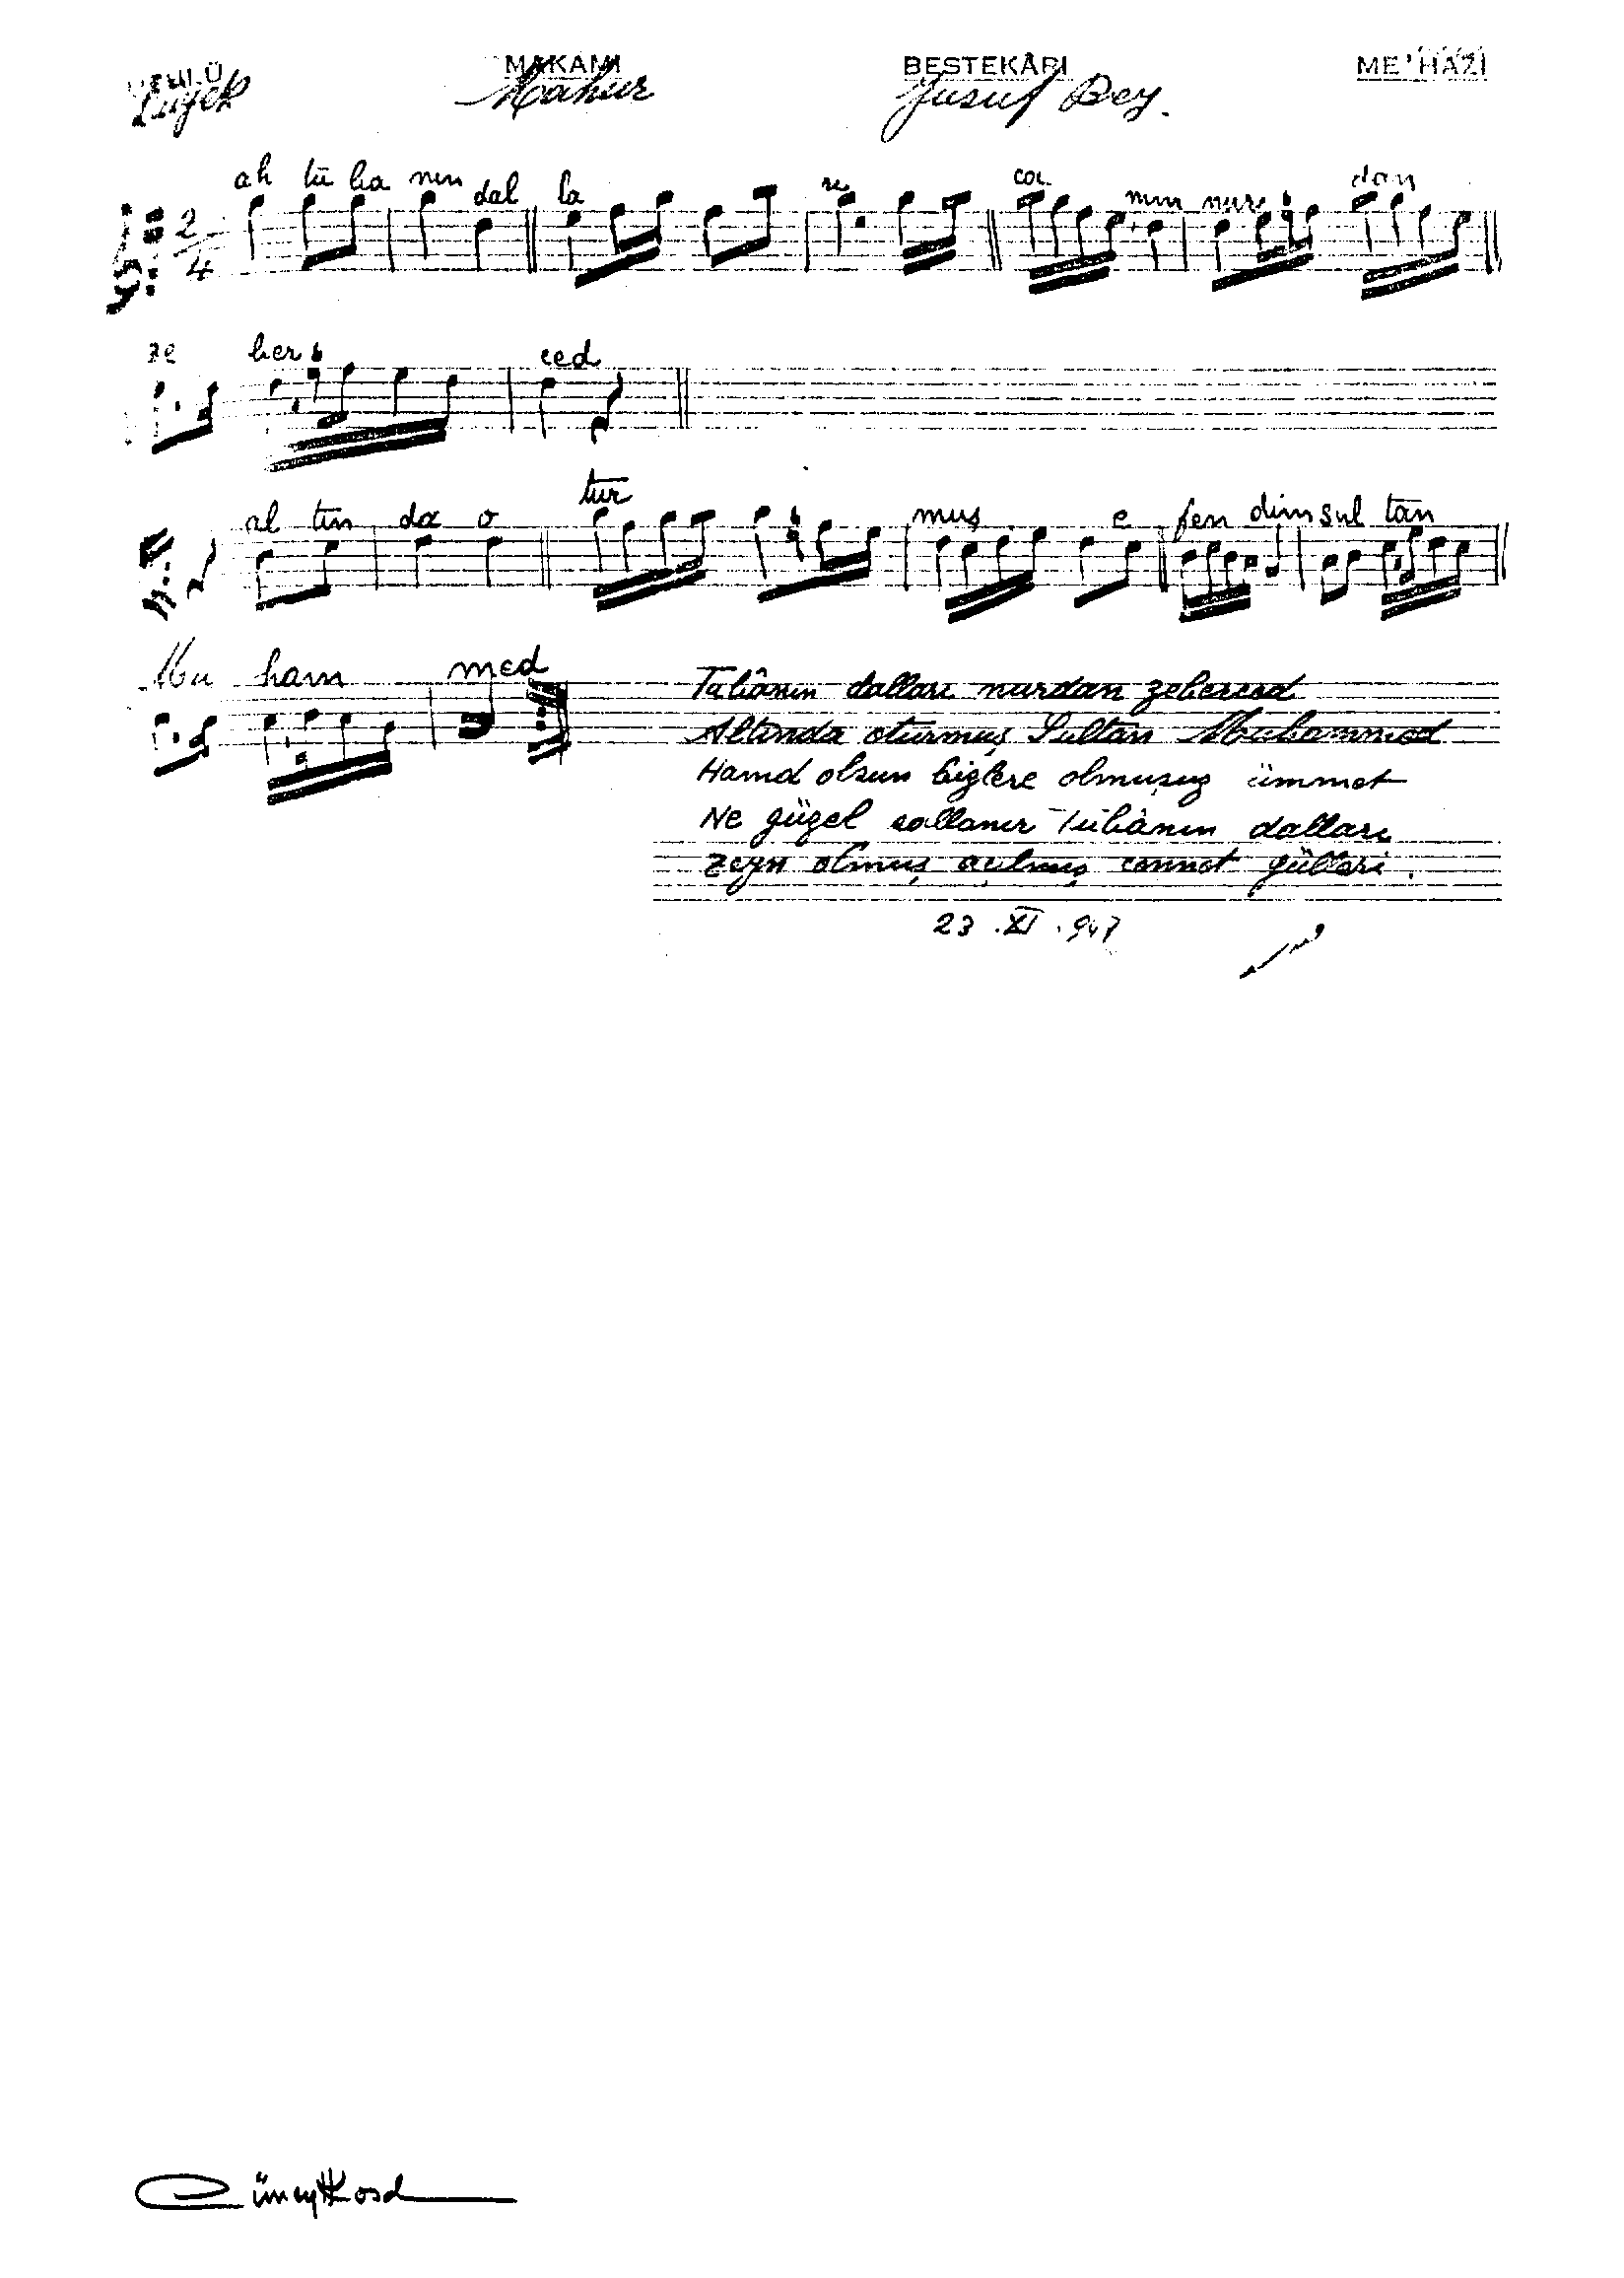 USULÜ MAKAMI BESTEKÂRI ME'HAZİ
Düyek Mahur Yusuf Bey.
ah tû ba nın dal la rı ca nım nur dan
2/4
ze ber ced
al tın da o tur muş e fen dim sul tan
Mu ham med
Tûbânın dalları nurdan zeberced
Altında oturmuş Sultan Muhammed
Hamd olsun bizlere olmuşuz ümmet
Ne güzel sallanır Tûbânın dalları
Zeyn olmuş açılmış cennet gülleri.
23 .XI .947
Cüneyt Kosal